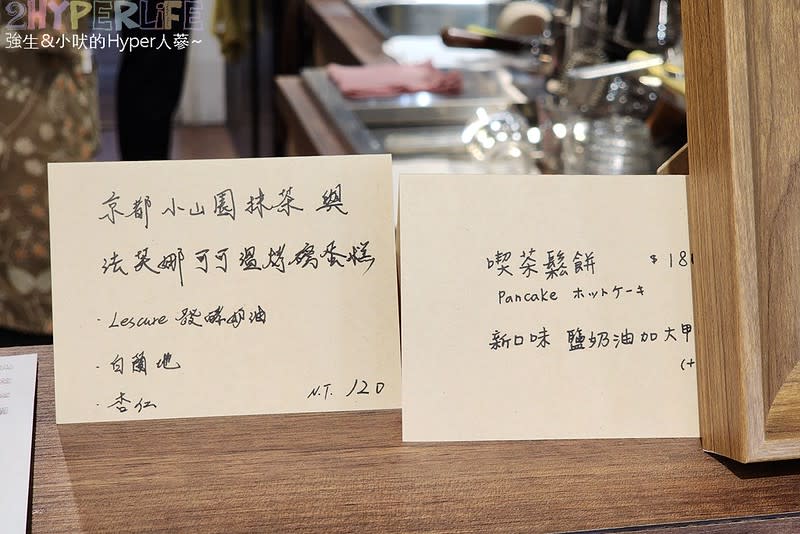 2HYPERLIFE
強生&小吠的Hyper人蔘~
京都小山園抹茶與
法芙娜可可溫烤磅蛋糕
·Lescure 發酵奶油
·白蘭地
·杏仁
N.T. 120
喫茶鬆餅 $18
Pancake ホットケーキ
新口味 鹽奶油加大甲
(+